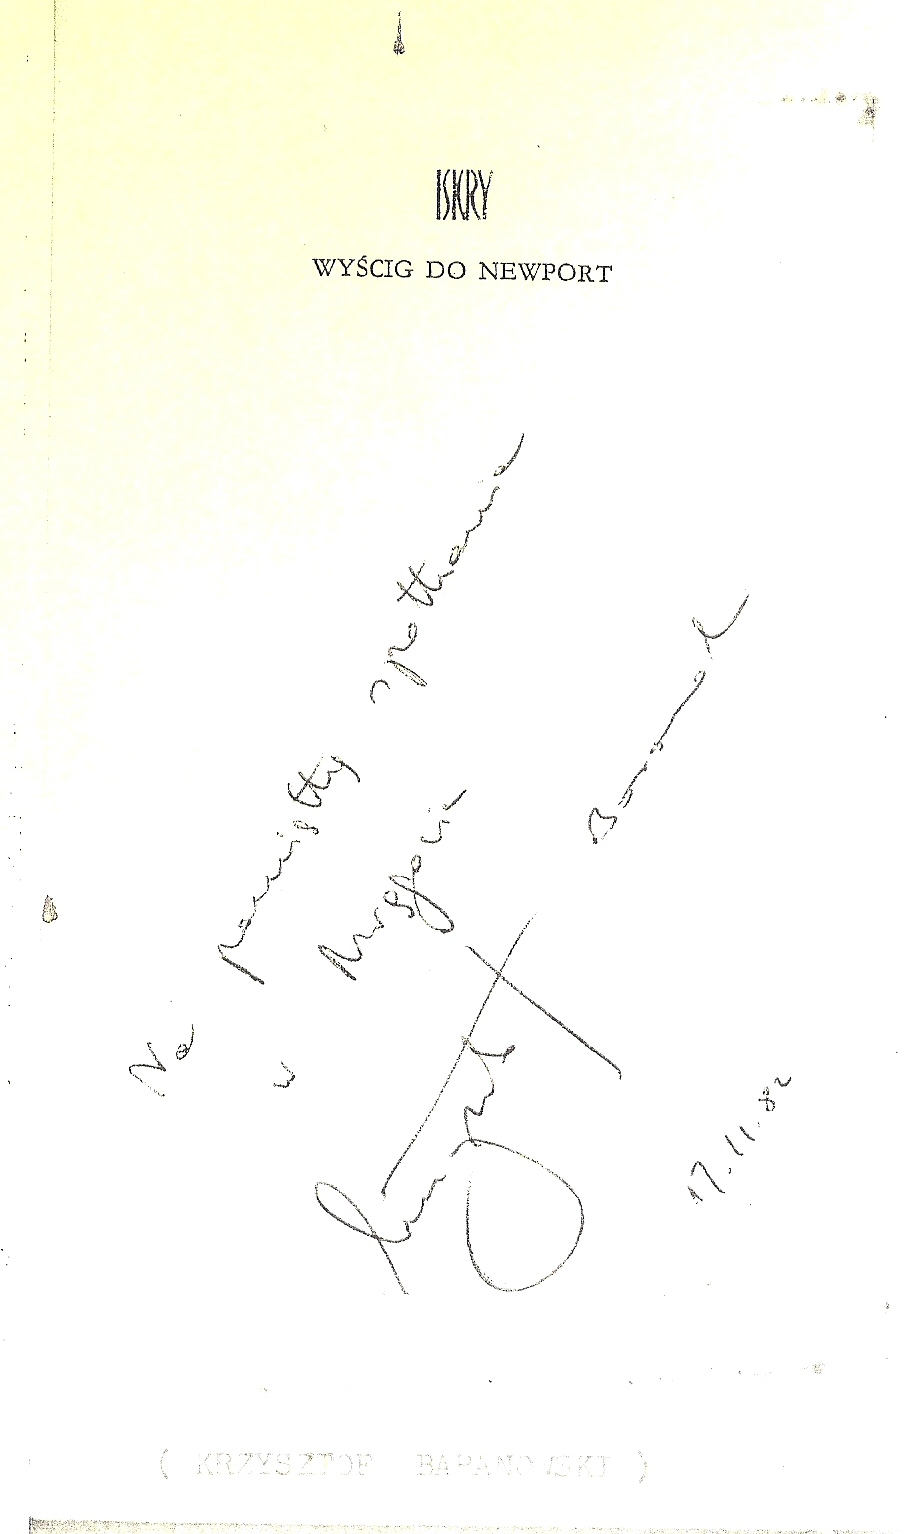 ISKRY
WYŚCIG DO NEWPORT
Na pamiątkę spotkania
w
17.11.82
( KRZYSZTOF BARANOWSKI )